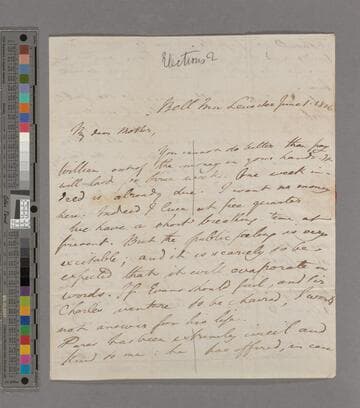 Elections?
Bell Inn Leicester June 1. 1826
My dear Mother,
You cannot do better than pay
William out of the money in your hands. He
will look in some week. One week in-
deed is already due. I want no money
here: Indeed I live at free quarters.
We have a short breathing time at
present. But the public feeling is very
excitable; and it is scarcely to be
expected that it will evaporate in
words. If Evans should fail, and Sir
Charles venture to be chaired, I would
not answer for his life.
Parer has been extremely civil and
kind to me: he has offered, in case